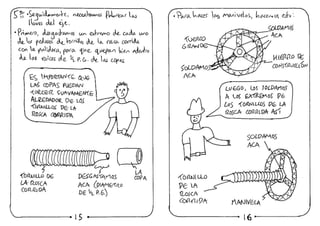 5º- Seguidamente, necesitamos fabricar las
llaves del eje.
• Primero, desgastamos un extremo de cada uno
de los palos de tornillo de la rosca corrida
con la pulidora, para que queden bien adentro
de las roscas de ½ P.G. de las copas
ES IMPORTANTE QUE
LAS COPAS PUEDAN
TORCER SUAVEMENTE
ALREDEDOR DE LOS
TORNILLOS DE LA
ROSCA CORRIDA
TORNILLO DE
LA ROSCA
CORRIDA
DESGASTAMOS
ACA (DIAMETRO
DE ½ P.G)
LA
COPA
15
• Para hacer las manivelas, hacemos esto:
TUERCO
GRANDE
SOLDAMOS
ACA
SOLDAMOS
ACA
HIERRO DE
CONSTRUCCIÓN
LUEGO, LOS SOLDAMOS
A LOS EXTREMOS DE
LOS TORNILLOS DE LA
ROSCA CORRIDA ASÍ
SOLDAMOS
ACA
TORNILLO
DE LA
ROSCA
CORRIDA
MANIVELA
16